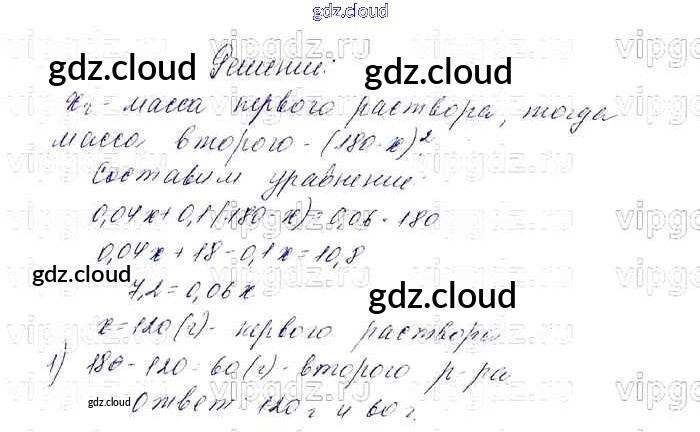 gdz.cloud
vipgdz.ru
gdz.cloud Решение: gdz.cloud
x г - масса первого раствора, тогда
масса второго - (180-x) г
Составим уравнение:
0,04x+0,1(180-x)=0,06·180
0,04x+18-0,1x=10,8
gdz.cloud 7,2=0,06x gdz.cloud
x=120(г)- первого раствора
1) 180-120=60(г)-второго р-ра
gdz.cloud Ответ: 120 г и 60 г.